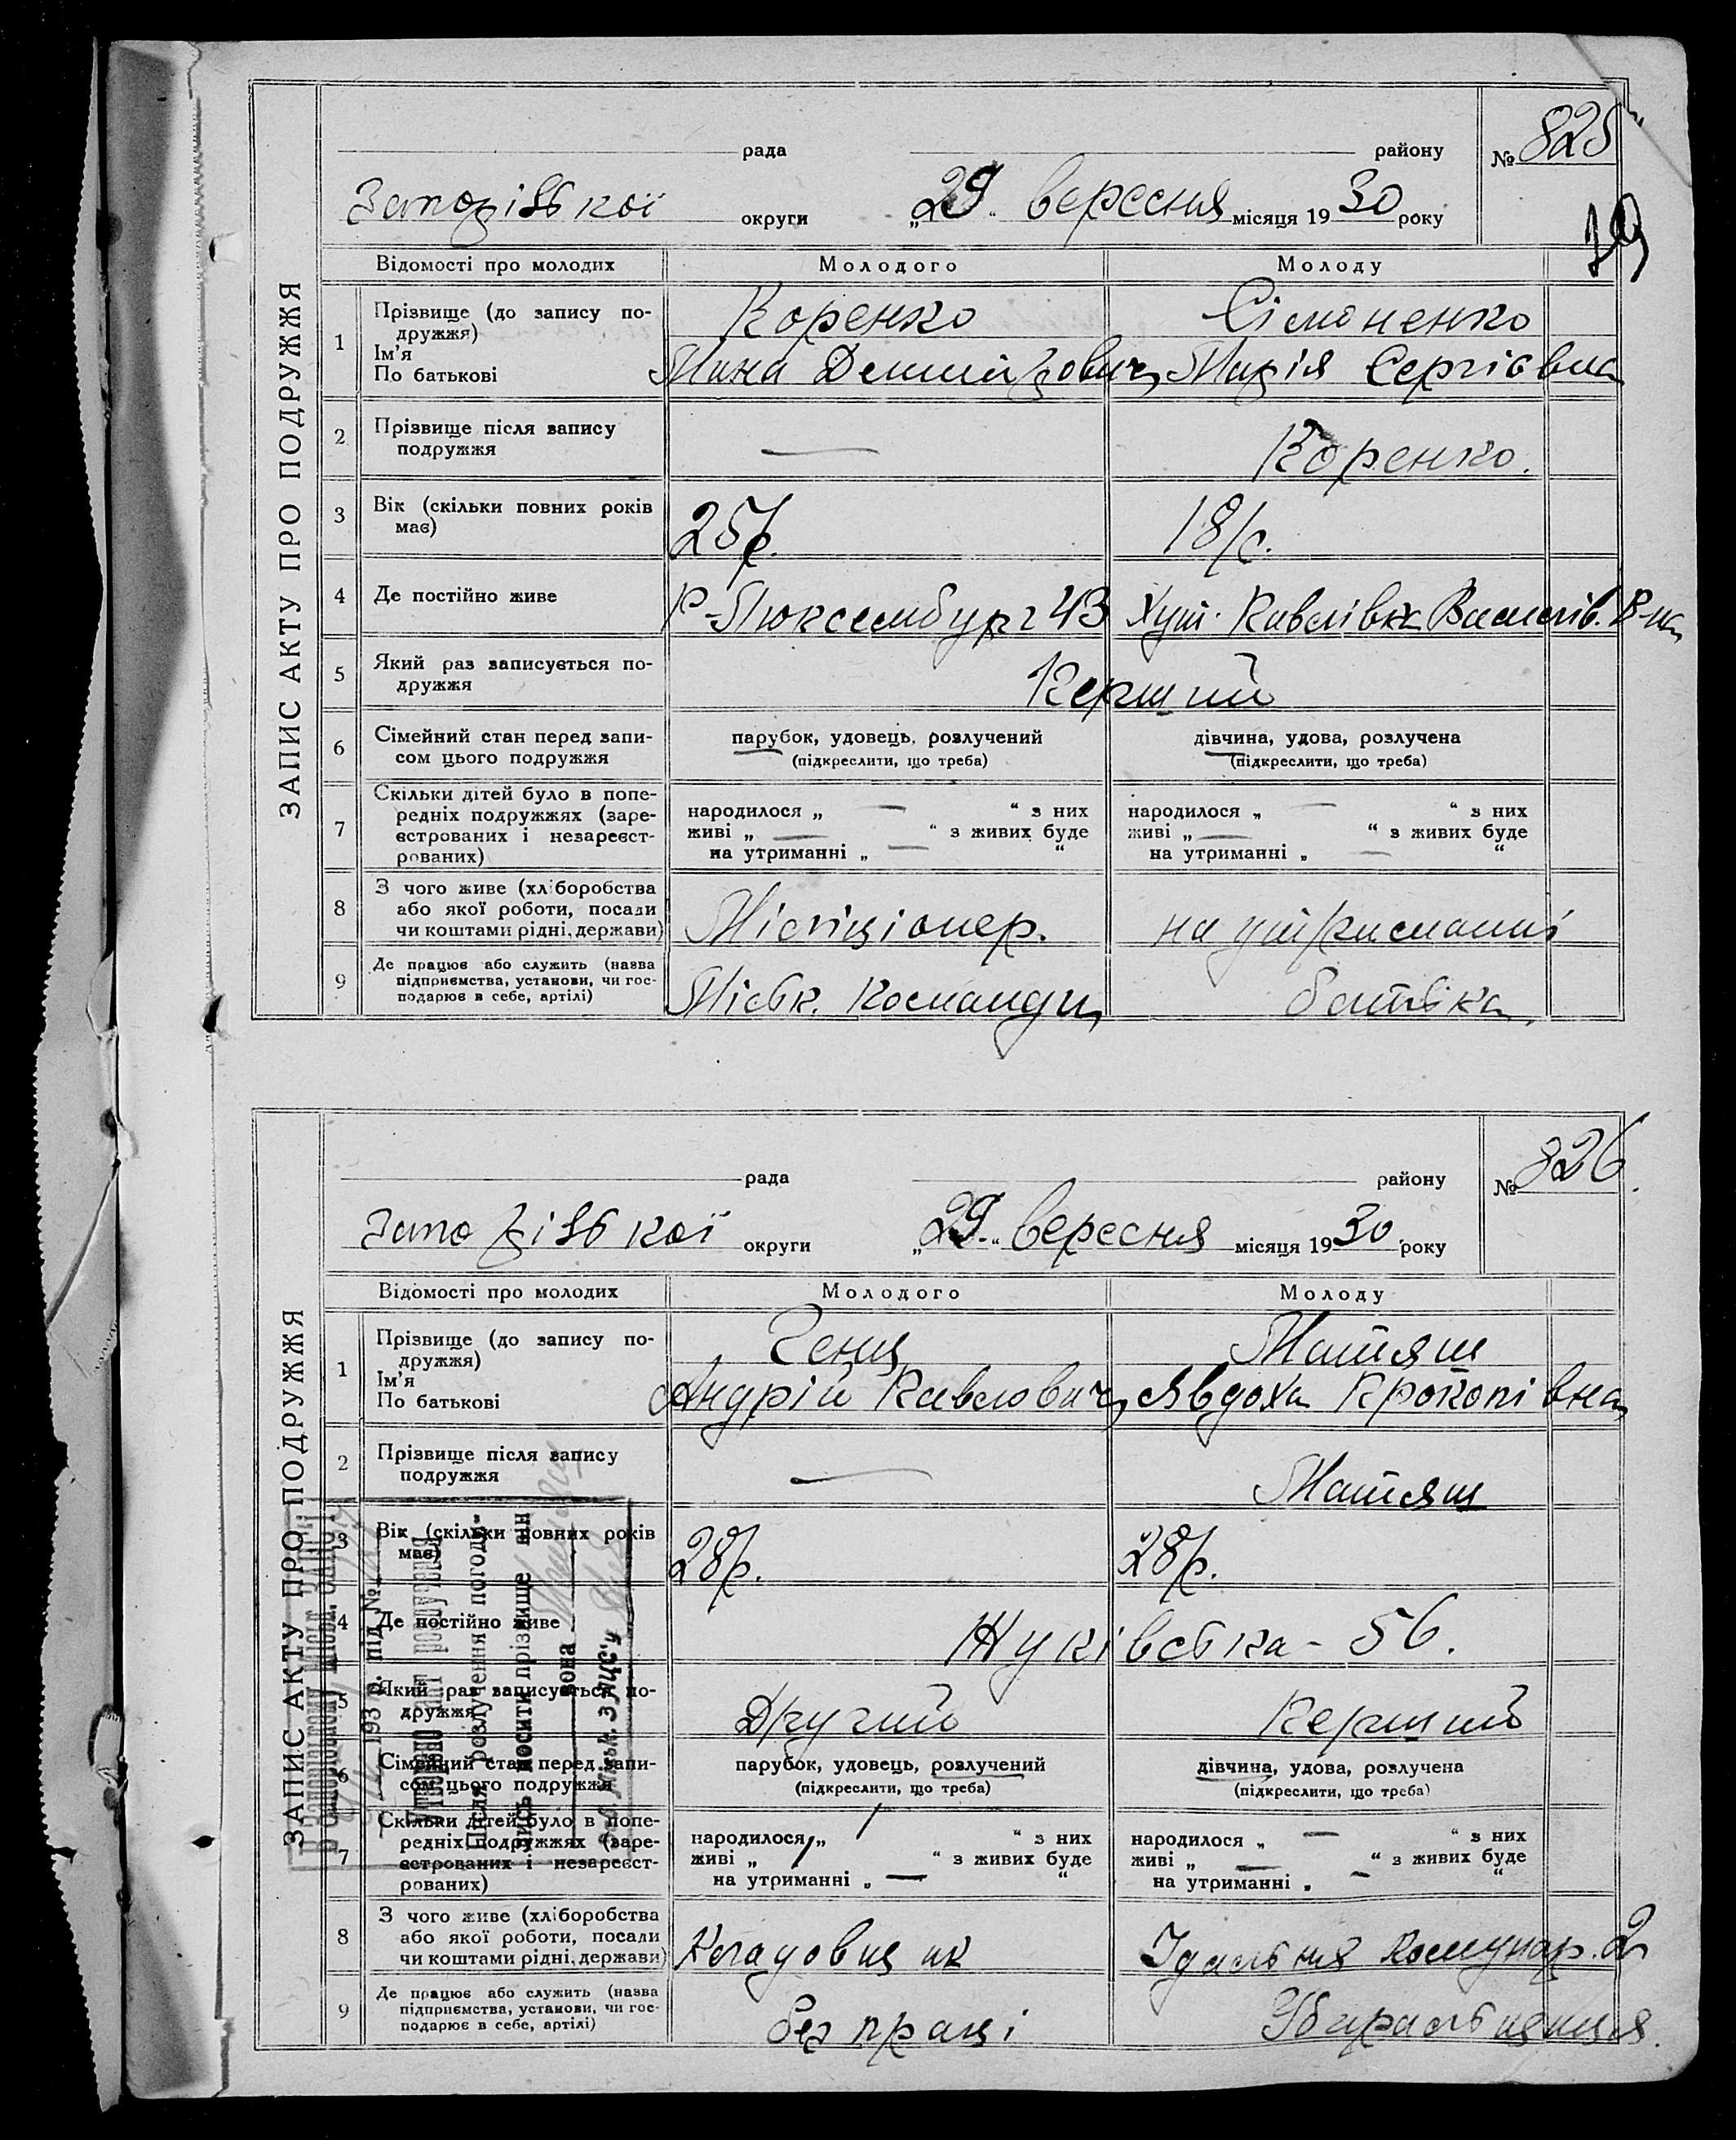 ЗАПИС АКТУ ПРО ПОДРУЖЖЯ
рада району № 825
Запорізької округи „29“ вересня місяця 1930 року
Відомості про молодих Молодого Молоду
1 Прізвище (до запису по- Коренко Сімоненко
дружжя)
Ім'я Мина Демидович Марія Сергіївна
По батькові
2 Прізвище після запису — Коренко.
подружжя
3 Вік (скільки повних років 25 р. 18 р.
має)
4 Де постійно живе Р-Люксембург 43 Хут. Павлівка Василів. Р-на
5 Який раз записується по- Перший
дружжя
6 Сімейний стан перед запи- парубок, удовець, розлучений дівчина, удова, розлучена
сом цього подружжя (підкреслити, що треба) (підкреслити, що треба)
7 Скільки дітей було в попе-
редніх подружжях (заре- народилося „ — “ з них народилося „ — “ з них
єстрованих і незареєст- живі „ — “ з живих буде живі „ — “ з живих буде
рованих) на утриманні „ — “ на утриманні „ — “
8 З чого живе (хліборобства
або якої роботи, посади Міліціонер. на утриманні
чи коштами рідні, держави)
9 Де працює або служить (назва
підприємства, установи, чи гос- Міськ. Команди батька
подарює в себе, артілі)
ЗАПИС АКТУ ПРО ПОДРУЖЖЯ
рада району № 826.
Запорізької округи „29“ вересня місяця 1930 року
Відомості про молодих Молодого Молоду
1 Прізвище (до запису по- Матяш
дружжя)
Ім'я Андрій Павлович Явдоха Прокопівна
По батькові
2 Прізвище після запису — Матяш
подружжя
3 Вік (скільки повних років 28 р. 28 р.
має)
4 Де постійно живе Жуківська - 56.
5 Який раз записується по- Другий Перший
дружжя
6 Сімейний стан перед запи- парубок, удовець, розлучений дівчина, удова, розлучена
сом цього подружжя (підкреслити, що треба) (підкреслити, що треба)
7 Скільки дітей було в попе-
редніх подружжях (заре- народилося „ 1 “ з них народилося „ — “ з них
єстрованих і незареєст- живі „ 1 “ з живих буде живі „ — “ з живих буде
рованих) на утриманні „ — “ на утриманні „ — “
8 З чого живе (хліборобства
або якої роботи, посади Кладовщик Їдальня Комунар. 2
чи коштами рідні, держави)
9 Де працює або служить (назва
підприємства, установи, чи гос- без праці Убиральниця.
подарює в себе, артілі)
В Запорізькому міськ. ЗАГСІ
193 р. під №
Утворено акт розлучення
Після розлучення погоди-
лись носити прізвище він
вона
ЗАГС'у